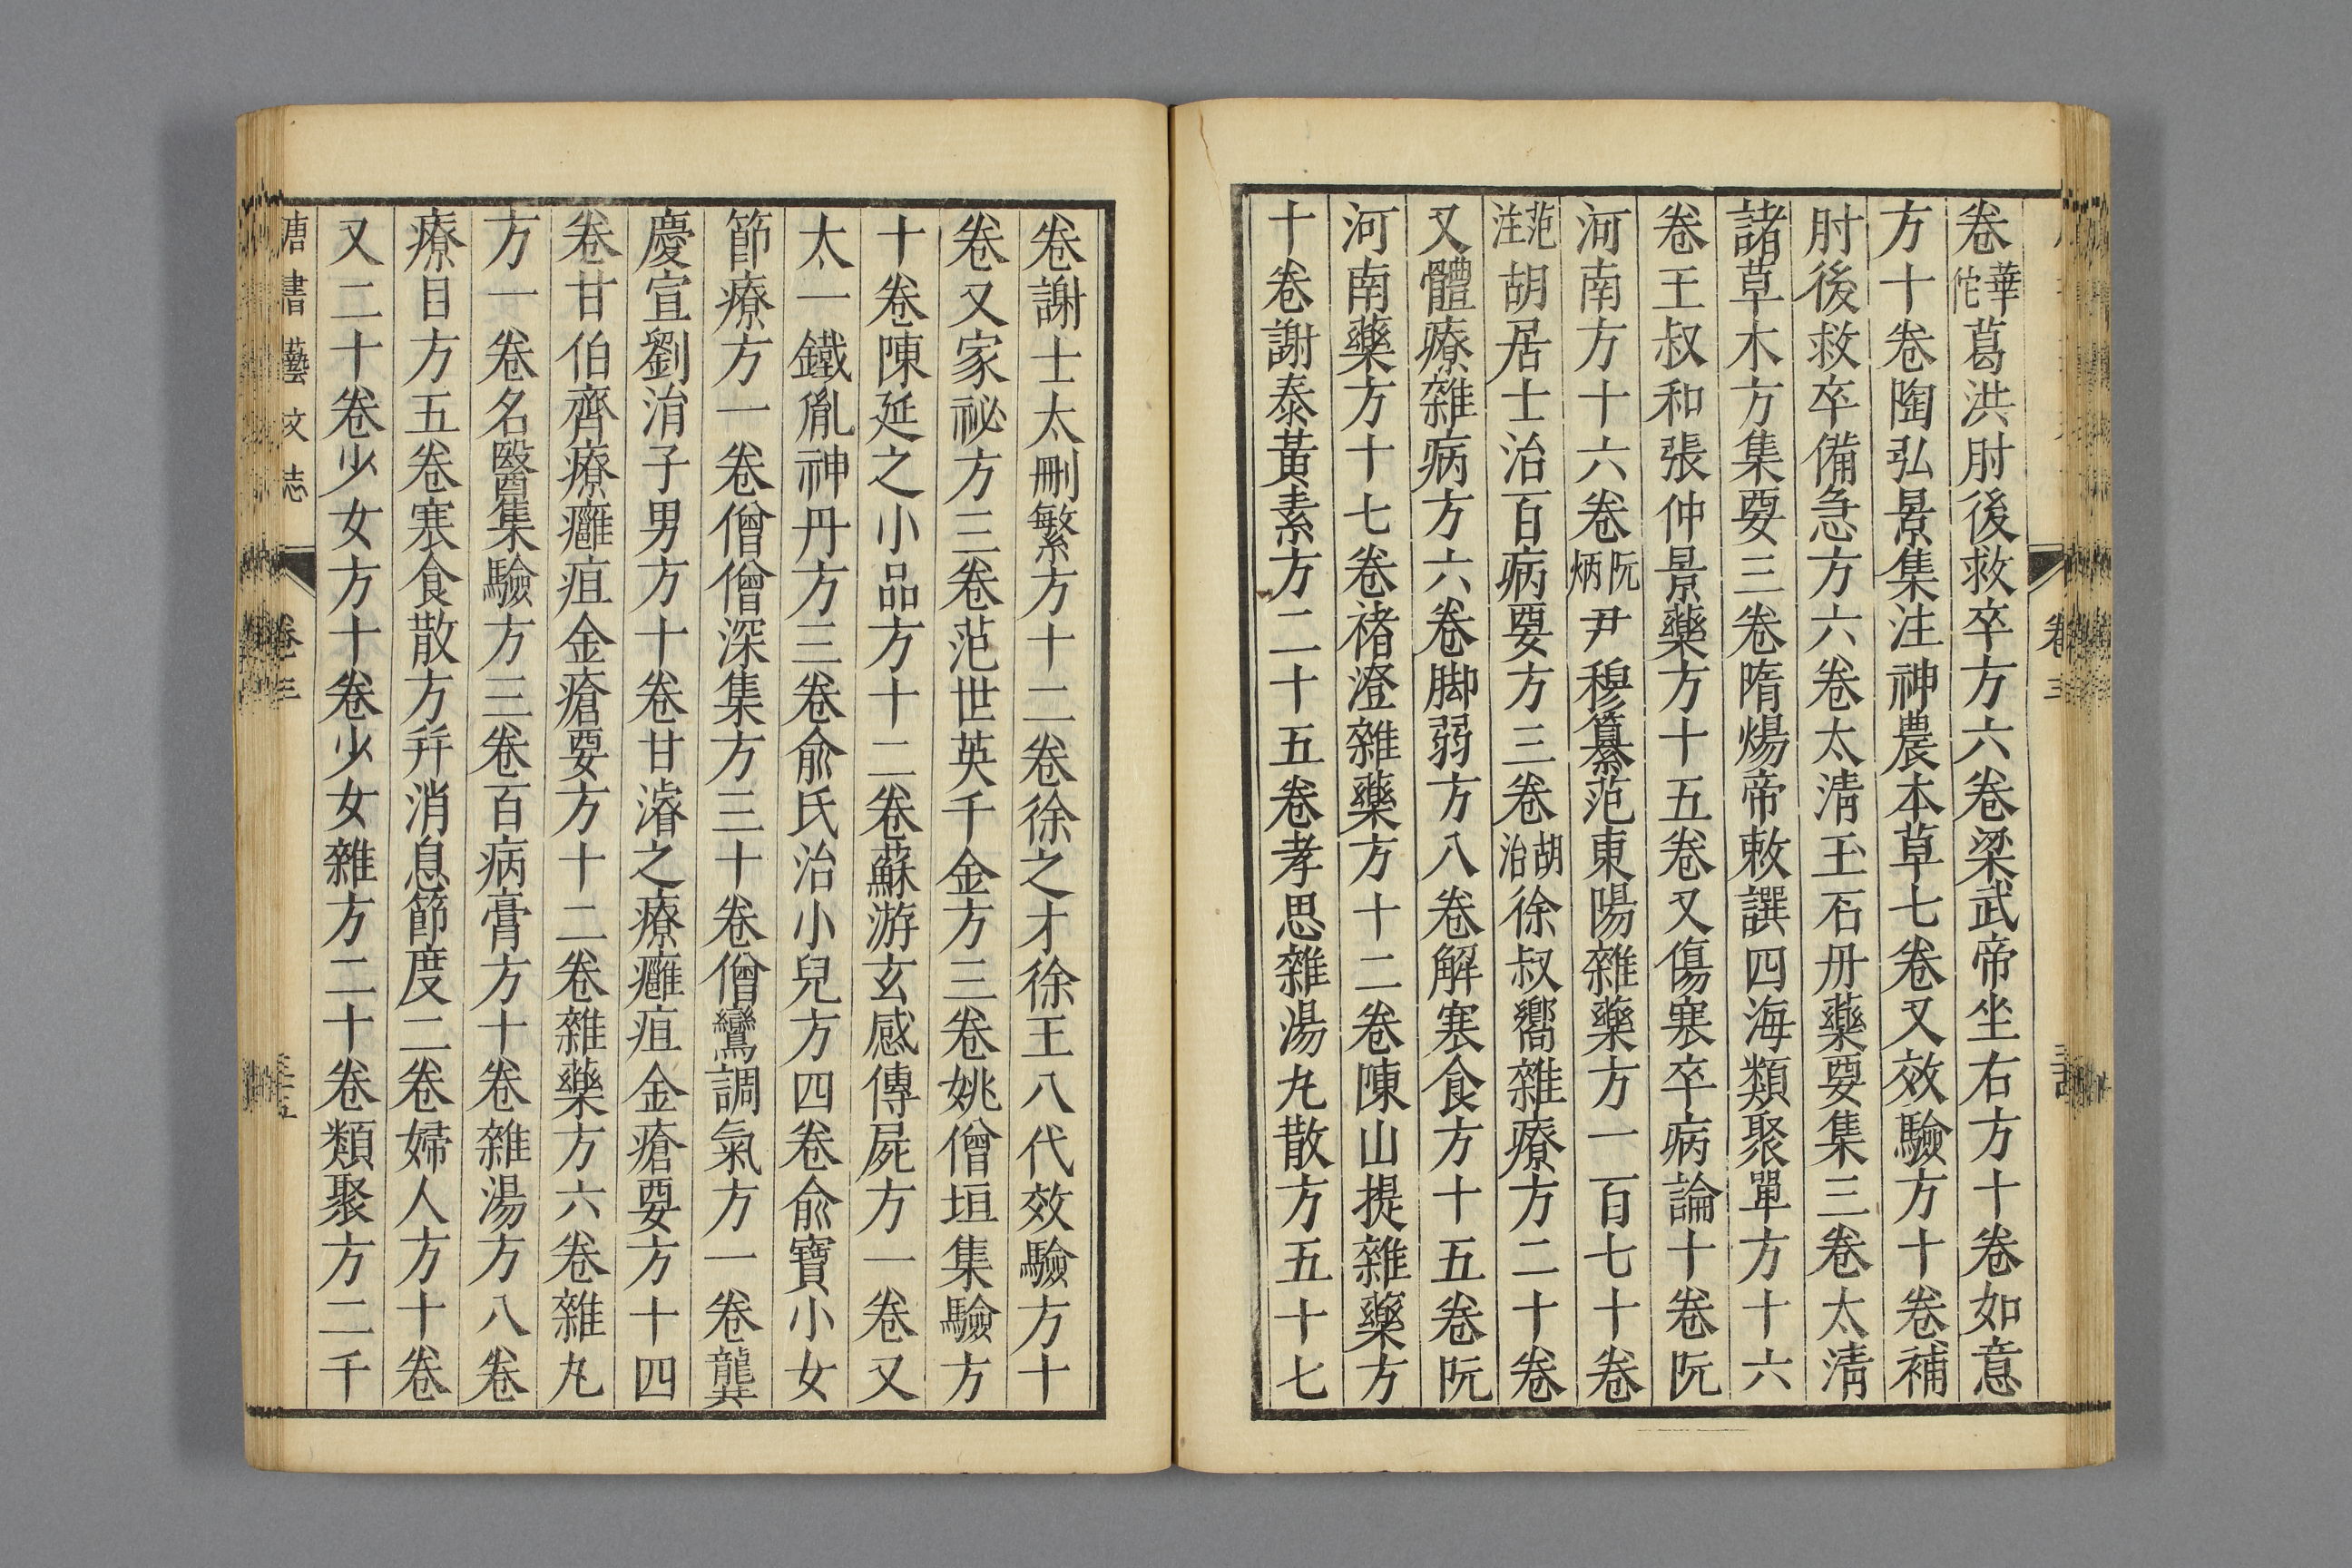 卷華佗葛洪肘後救卒方六卷梁武帝坐右方十卷如意
方十卷陶弘景集注神農本草七卷又效驗方十卷補
肘後救卒備急方六卷太清玉石丹藥要集三卷太清
諸草木方集要三卷隋煬帝敕譔四海類聚單方十六
卷王叔和張仲景藥方十五卷又傷寒卒病論十卷阮
河南方十六卷阮炳尹穆纂范東陽雜藥方一百七十卷
范注胡居士治百病要方三卷胡治徐叔嚮雜療方二十卷
又體療雜病方六卷脚弱方八卷解寒食方十五卷阮
河南藥方十七卷褚澄雜藥方十二卷陳山提雜藥方
十卷謝泰黃素方二十五卷孝思雜湯丸散方五十七
卷三
卷謝士太刪繁方十二卷徐之才徐王八代效驗方十
卷又家祕方三卷范世英千金方三卷姚僧垣集驗方
十卷陳延之小品方十二卷蘇游玄感傳屍方一卷又
太一鐵胤神丹方三卷俞氏治小兒方四卷俞寶小女
節療方一卷僧僧深集方三十卷僧鸞調氣方一卷龔
慶宣劉涓子男方十卷甘濬之療癰疽金瘡要方十四
卷甘伯齊療癰疽金瘡要方十二卷雜藥方六卷雜丸
方一卷名醫集驗方三卷百病膏方十卷雜湯方八卷
療目方五卷寒食散方幷消息節度二卷婦人方十卷
又二十卷少女方十卷少女雜方二十卷類聚方二千
唐書藝文志 卷三